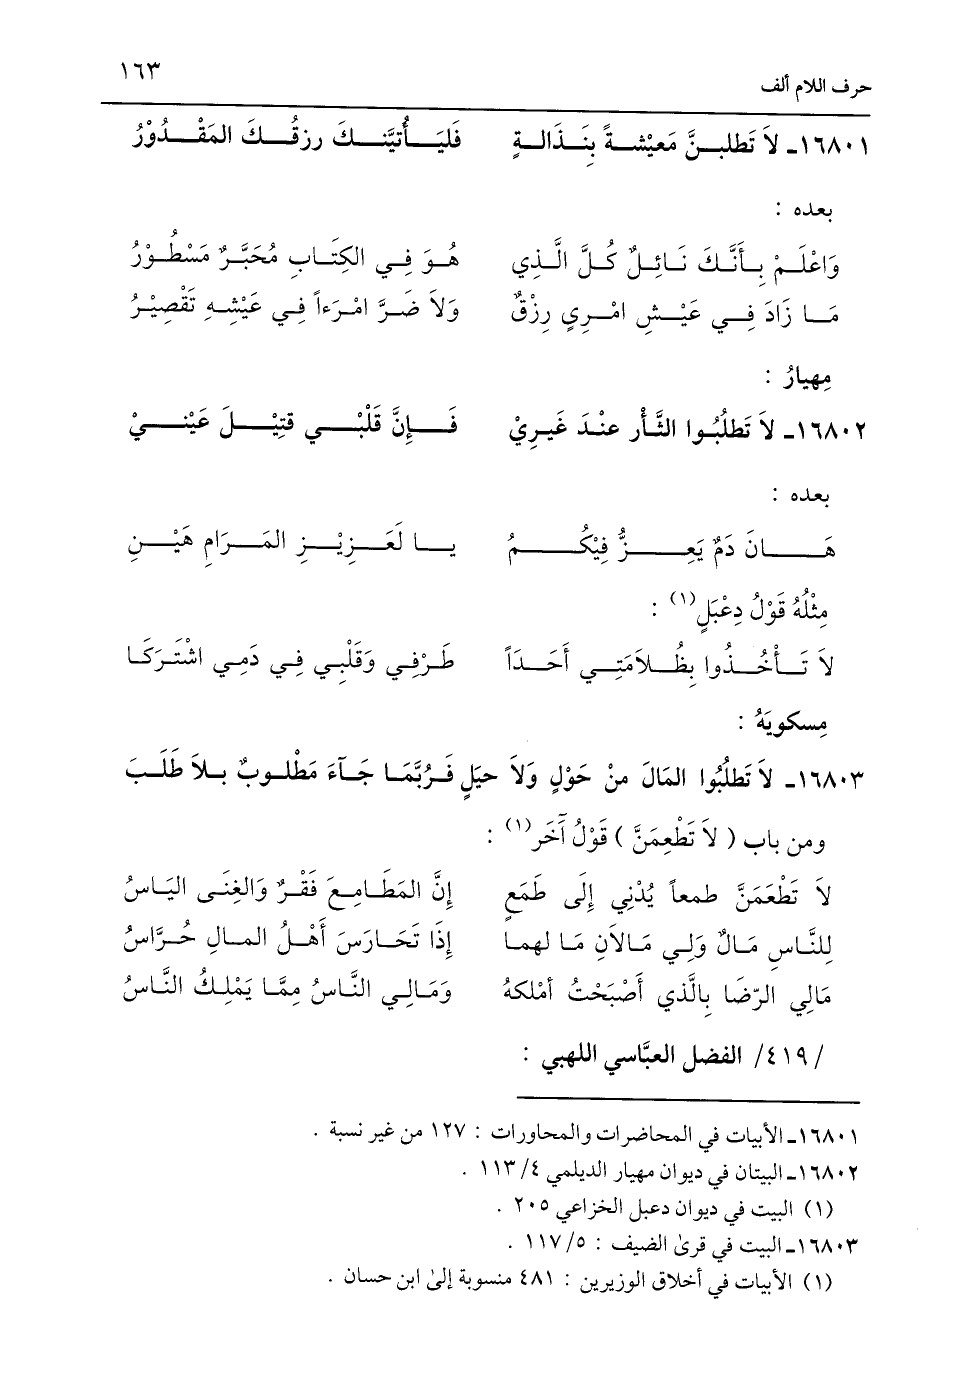 حرف اللام ألف ١٦٣
١٦٨٠١ـ لاَ تَطلبنَّ مَعيْشةً بنَذالةٍ فَليَأتيَّنكَ رزقُكَ المَقْدُوْرُ
بعده :
وَاعْلَمْ بِأَنَّكَ نَائِلٌ كُلَّ الَّذِي هُوَ فِي الكِتَابِ مُحَبَّرٌ مَسْطُوْرُ
مَا زَادَ فِي عَيْشِ امْرِيٍ رِزْقٌ وَلاَ ضَرَّ امْرَءاً فِي عَيْشِهِ تَقْصِيْرُ
مِهيارُ :
١٦٨٠٢ـ لاَ تَطلُبُوا الثَّأر عنْدَ غَيرِيْ فَإِنَّ قَلْبْي قتِيْلَ عَيْنيْ
بعده :
هَانَ دَمٌ يَعِزُّ فِيْكُمُ يا لَعَزِيْزِ المَرَامِ هَيْنِ
مِثْلُهُ قَوْلُ دِعْبَلٍ(١) :
لاَ تَأْخُذُوا بِظُلاَمَتِي أَحَدَاً طَرْفِي وَقَلْبِي فِي دَمِي اشْتَرَكَا
مِسكويَهُ :
١٦٨٠٣ـ لاَ تَطلُبُوا المَالَ منْ حَوْلٍ وَلاَ حيَلٍ فَرُبَّمَا جَآءَ مَطْلوبٌ بلاَ طَلَبَ
ومن باب ( لاَ تَطْعِمَنَّ ) قَوْلُ آخَر(١) :
لاَ تَطْعَمَنَّ طمعاً يُدْنِي إِلَى طَمَعٍ إِنَّ المَطَامِعَ فَقْرٌ وَالغِنَى اليَاسُ
لِلنَّاسِ مَالٌ وَلِي مَالاَنِ مَا لهما إِذَا تَحَارَسَ أَهْلُ المالِ حُرَّاسُ
مَالِي الرّضَا بِالَّذي أَصْبَحْتُ أمْلكهُ وَمَالِي النَّاسُ مِمَّا يَمْلِكُ النَّاسُ
/٤١٩/ الفضل العبَّاسي اللهبي :
١٦٨٠١ـ الأبيات في المحاضرات والمحاورات : ١٢٧ من غير نسبة .
١٦٨٠٢ـ البيتان في ديوان مهيار الديلمي ٤/ ١١٣ .
(١) البيت في ديوان دعبل الخزاعي ٢٠٥ .
١٦٨٠٣ـ البيت في قرىٰ الضيف : ٥/ ١١٧ .
(١) الأبيات في أخلاق الوزيرين : ٤٨١ منسوبة إلىٰ ابن حسان .